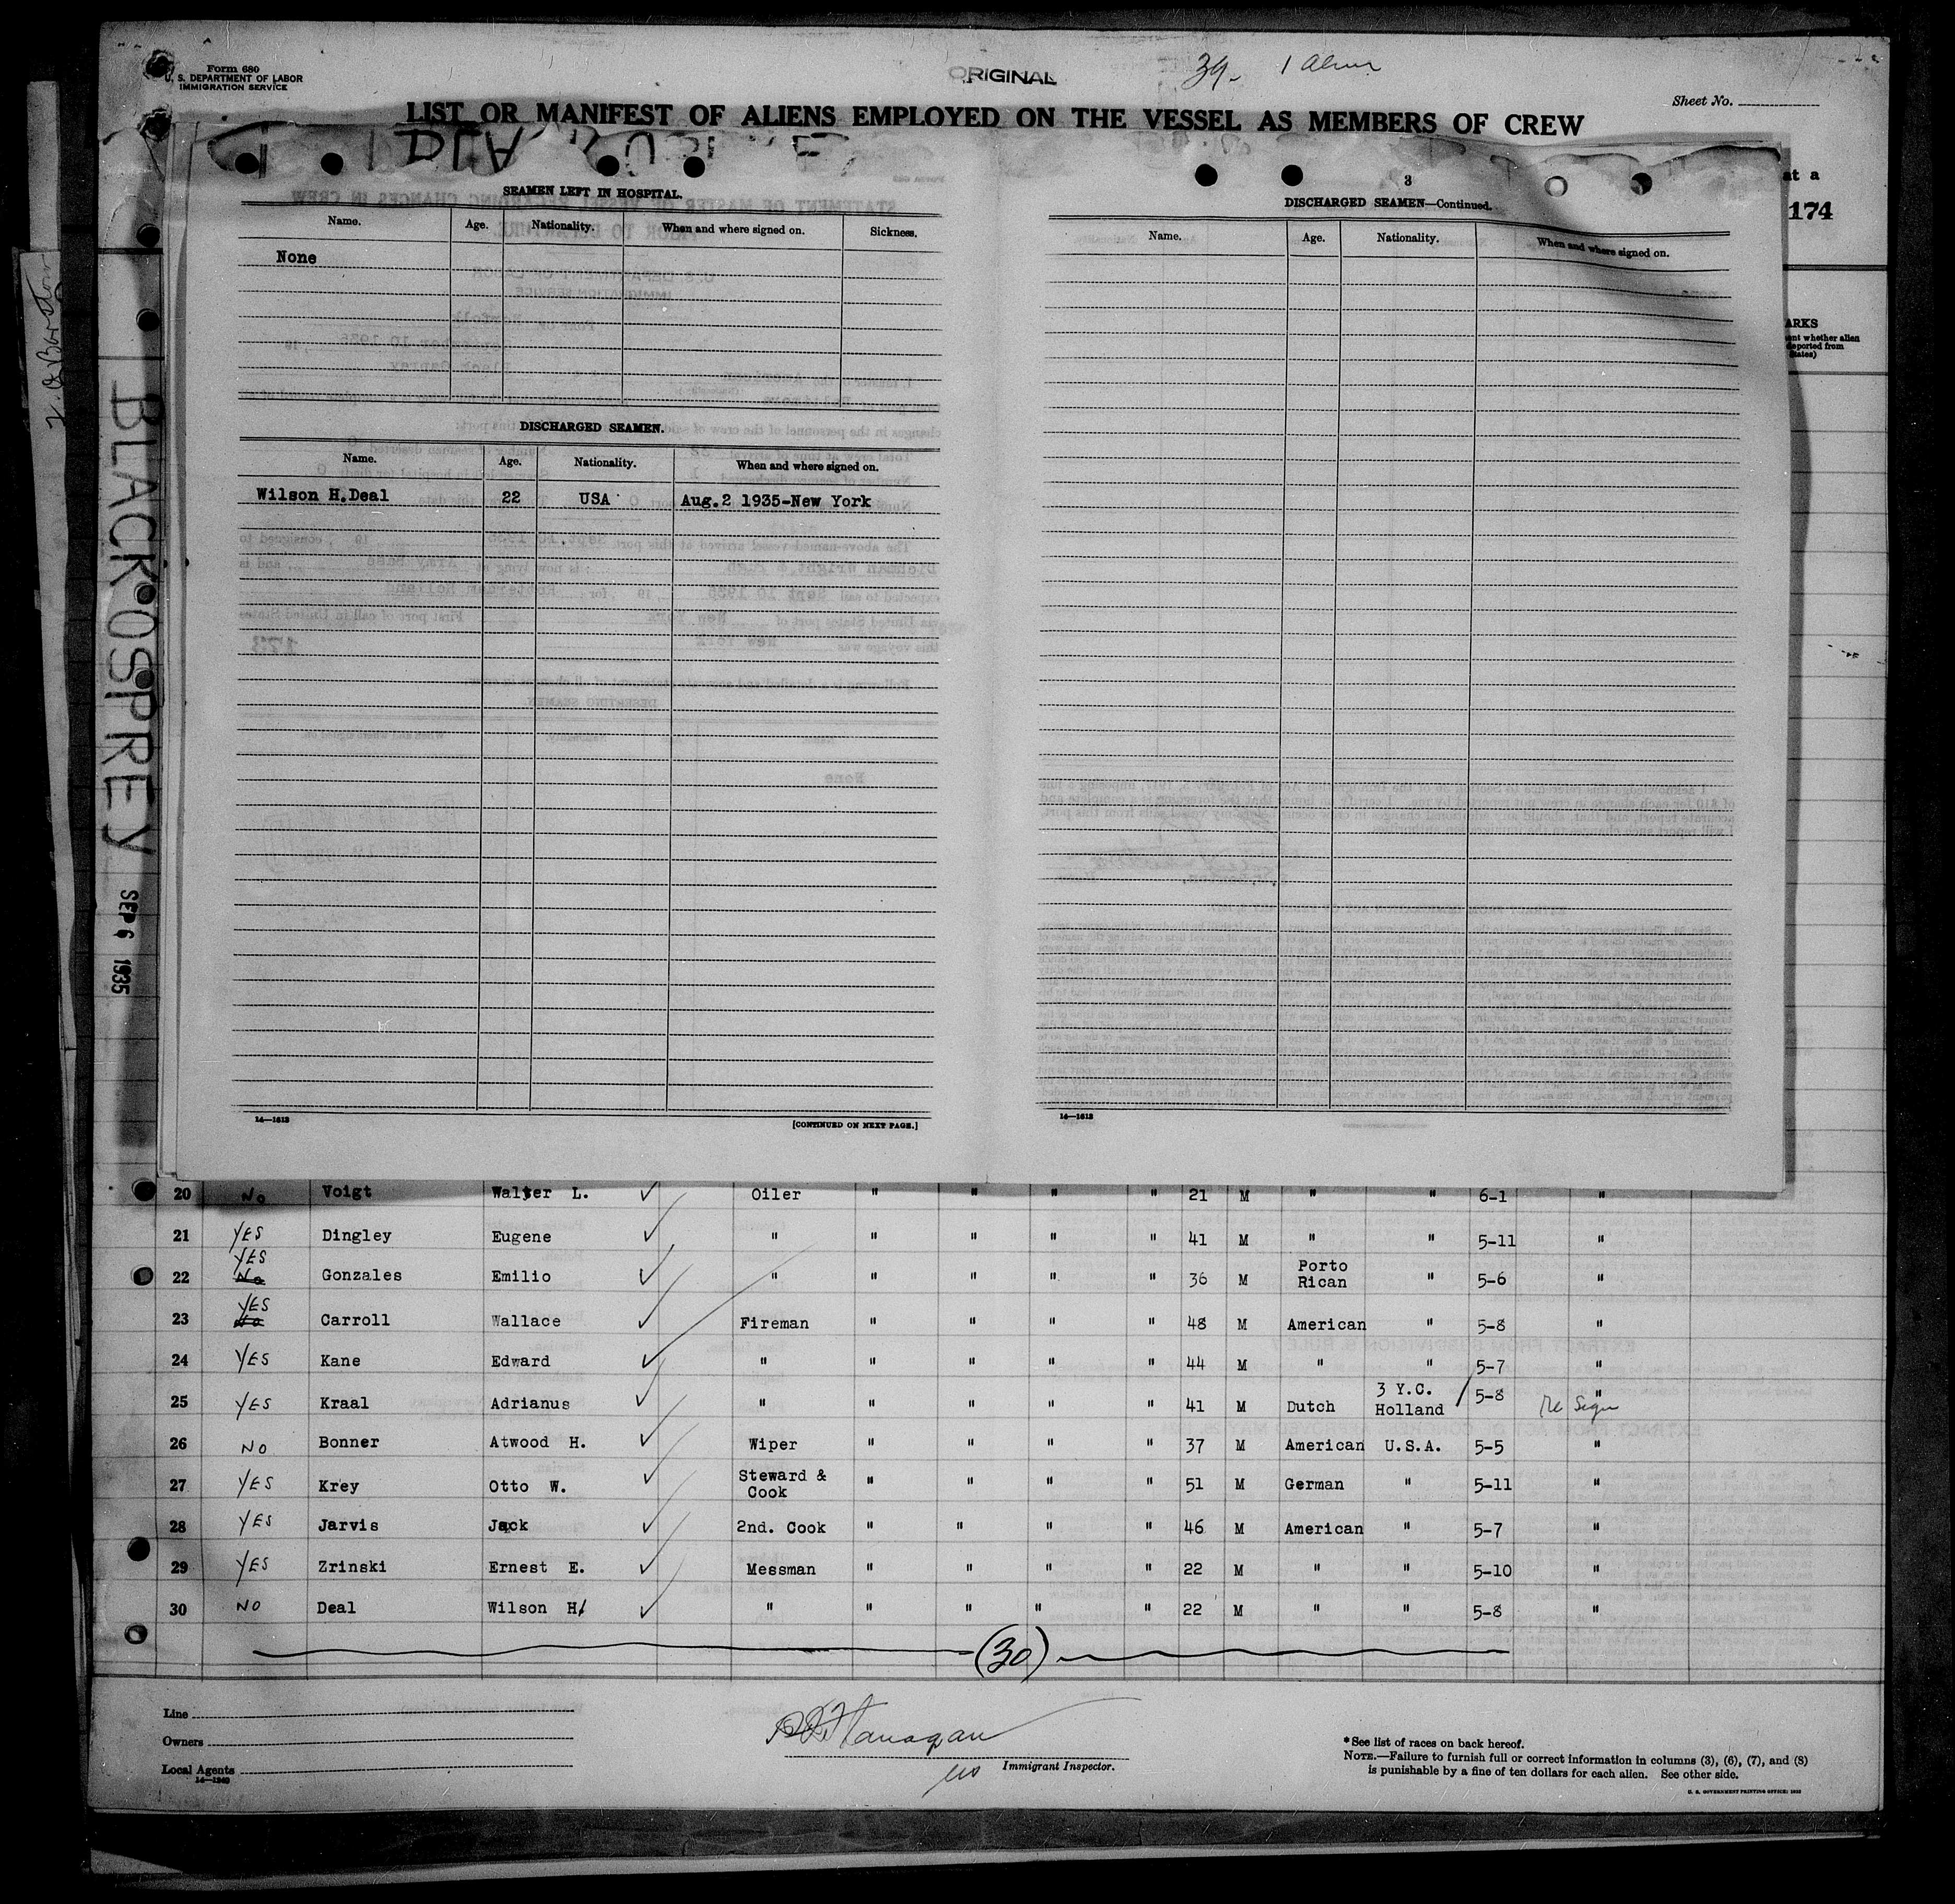 Form 680
U. S. DEPARTMENT OF LABOR
IMMIGRATION SERVICE
ORIGINAL
39- 1 Alien
Sheet No.
LIST OR MANIFEST OF ALIENS EMPLOYED ON THE VESSEL AS MEMBERS OF CREW
at a
174
ARKS
ent whether alien
deported from
States)
BLACK OSPREY
SEP 6 1935
SEAMEN LEFT IN HOSPITAL.
Name. Age. Nationality. When and where signed on. Sickness.
None
DISCHARGED SEAMEN.
Name. Age. Nationality. When and where signed on.
Wilson H.Deal 22 USA Aug.2 1935-New York
14—1613 [CONTINUED ON NEXT PAGE.]
3
DISCHARGED SEAMEN—Continued.
Name. Age. Nationality. When and where signed on.
14—1613
20 No Voigt Walter L. ✓ Oiler " " " " 21 M " " 6-1 "
21 YES Dingley Eugene ✓ " " " " " 41 M " " 5-11 "
YES
22 No Gonzales Emilio ✓ " " " " " 36 M Porto Rican " 5-6 "
YES
23 No Carroll Wallace ✓ Fireman " " " " 48 M American " 5-8 "
24 YES Kane Edward ✓ " " " " " 44 M " " 5-7 "
25 YES Kraal Adrianus ✓ " " " " " 41 M Dutch 3 Y.C. Holland / 5-8 "
26 NO Bonner Atwood H. ✓ Wiper " " " " 37 M American U.S.A. 5-5 "
27 YES Krey Otto W. ✓ Steward & Cook " " " " 51 M German " 5-11 "
28 YES Jarvis Jack ✓ 2nd. Cook " " " " 46 M American " 5-7 "
29 YES Zrinski Ernest E. ✓ Messman " " " " 22 M " " 5-10 "
30 NO Deal Wilson H. ✓ " " " " " 22 M " " 5-8 "
(30)
Line
Owners
Local Agents
14—1240
Flanagan
Immigrant Inspector.
* See list of races on back hereof.
NOTE.—Failure to furnish full or correct information in columns (3), (6), (7), and (8)
is punishable by a fine of ten dollars for each alien. See other side.
U. S. GOVERNMENT PRINTING OFFICE: 1932